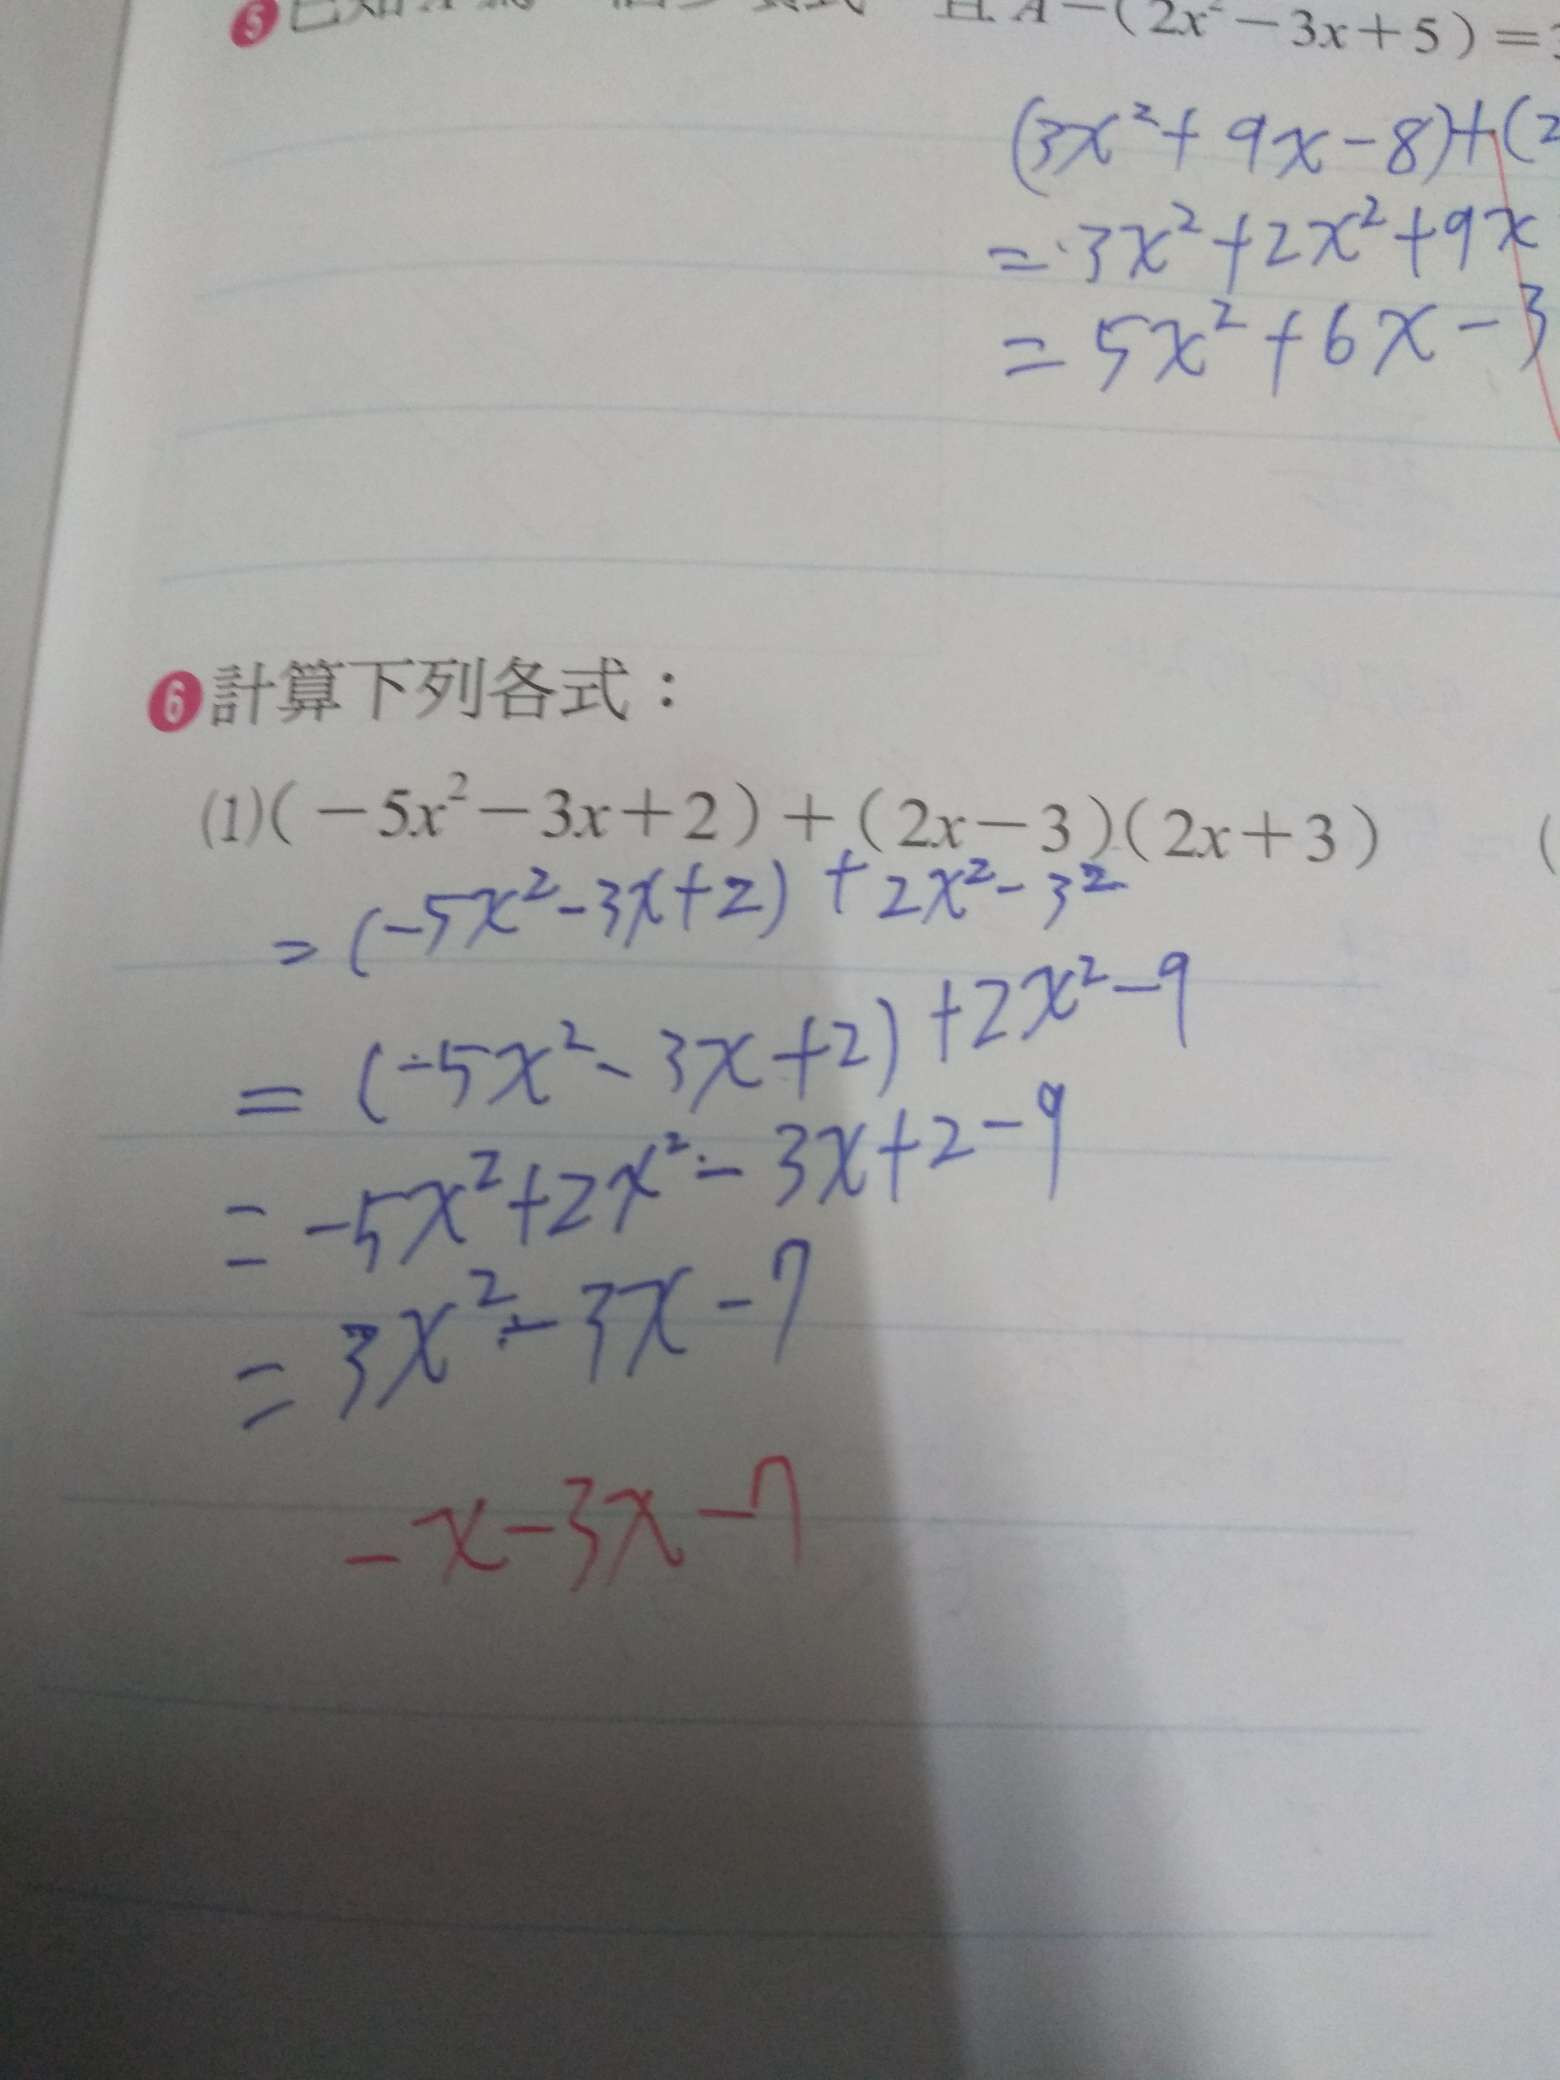 5 且 A－(2x²－3x＋5)＝
(3x²+9x-8)+(2
=3x²+2x²+9x
=5x²+6x-3
6 計算下列各式：
(1)(－5x²－3x＋2)＋(2x－3)(2x＋3) (
=(-5x²-3x+2)+2x²-3²
=(-5x²-3x+2)+2x²-9
=-5x²+2x²-3x+2-9
=3x²-3x-7
-x-3x-7